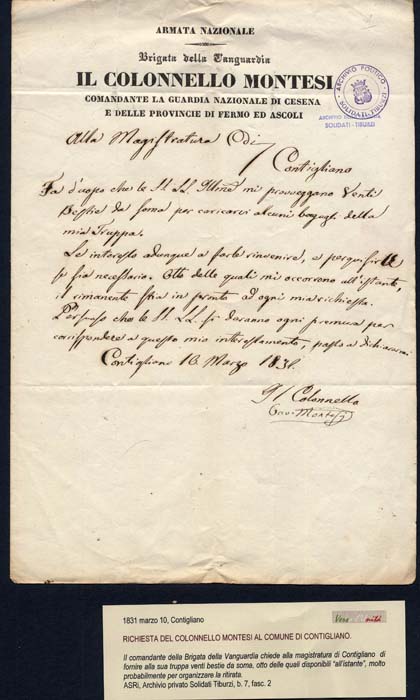 ARMATA NAZIONALE
Brigata della Vanguardia
IL COLONNELLO MONTESI
COMANDANTE LA GUARDIA NAZIONALE DI CESENA
E DELLE PROVINCIE DI FERMO ED ASCOLI
ARCHIVIO POLITICO
SOLIDATI-TIBURZI
SOLIDATI-TIBURZI
Alla Magistratura Di
Contigliano
Fa d'uopo che le SS. LL. Illme mi proveggano Venti
Bestie da soma per caricarci alcuni bagagli della
mia Truppa.
Le interesso adunque a farle rinvenire, e perquisirle
se sia necessario. Otto delle quali mi occorrono all'istante,
il rimanente stia in pronto ad ogni mia richiesta.
Persuaso che le SS. LL. si daranno ogni premura per
corrispondere a questo mio interessamento, passo a dichiararmi
Contigliano 10 Marzo 1831.
Il Colonnello
Montesi
1831 marzo 10, Contigliano
RICHIESTA DEL COLONNELLO MONTESI AL COMUNE DI CONTIGLIANO.
Il comandante della Brigata della Vanguardia chiede alla magistratura di Contigliano di
fornire alla sua truppa venti bestie da some, otto delle quali disponibili "all'istante", molto
probabilmente per organizzare la ritirata.
ASRi, Archivio privato Solidati Tiburzi, b. 7, fasc. 2